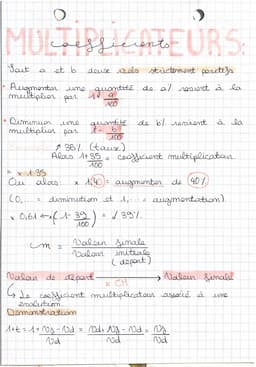 MULTIPLICATEURS:
coefficients
Soit a et b deux réels strictement positifs
• Augmenter une quantité de a% revient à la
multiplier par 1+ a/100
• Diminuer une quantité de b% revient à la
multiplier par 1- b/100
↗ 35% (taux)
Alors 1+35/100 = coefficient multiplicateur
= x 1.35
Ou alors: x 1,40 = augmenter de 40%
(0,... = diminution et 1,... = augmentation)
x 0,61 ↔ (1- 39/100) = ↙ 39%.
Cm = Valeur finale / Valeur initiale (départ)
Valeur de départ → Valeur finale
x CM
↳ Le coefficient multiplicateur associé à une
évolution
Démonstration
1+t = 1+ Vf - Vd / Vd = Vd + Vf - Vd / Vd = Vf / Vd